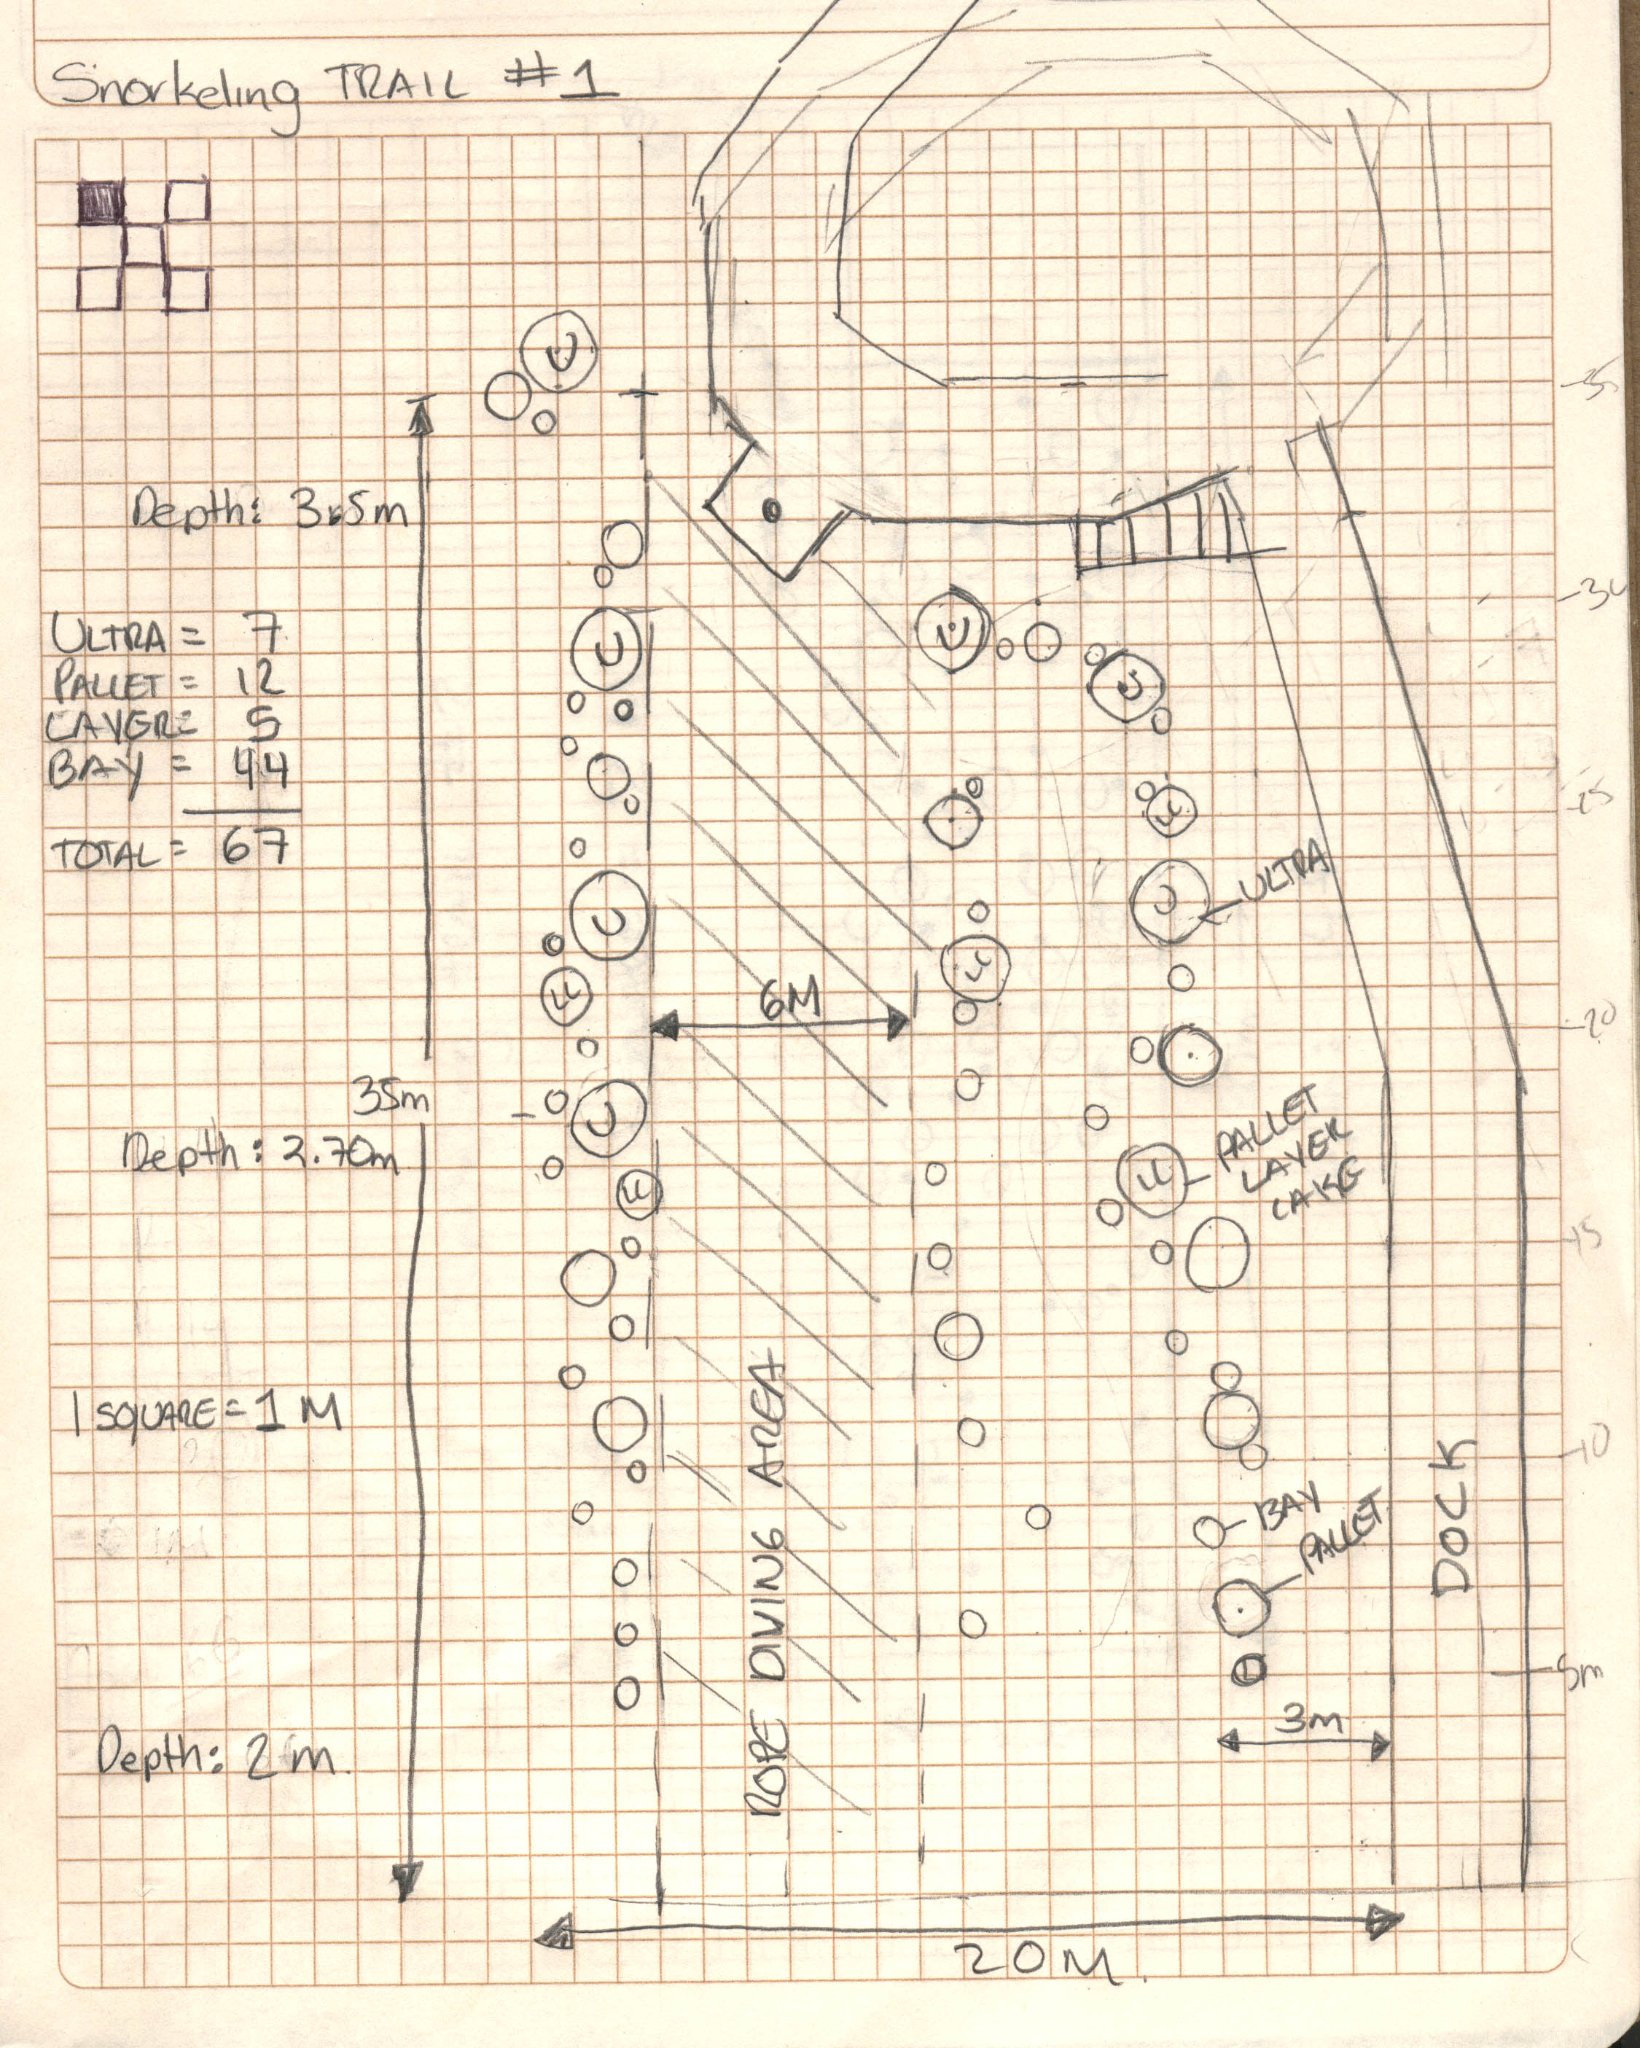 Snorkeling TRAIL #1
U
-35
Depth: 3.5m
-30
ULTRA = 7
PALLET = 12
LAYER = 5
BAY = 44
TOTAL = 67
U
U
U
-25
LL
U
ULTRA
U
LL
LL
6M
-20
35m
Depth: 2.70m
U
LL
LL
PALLET
LAYER
CAKE
-15
1 SQUARE = 1 M
-10
BAY
PALLET
DOCK
ROPE DIVING AREA
5m
3m
Depth: 2 m.
20 M.